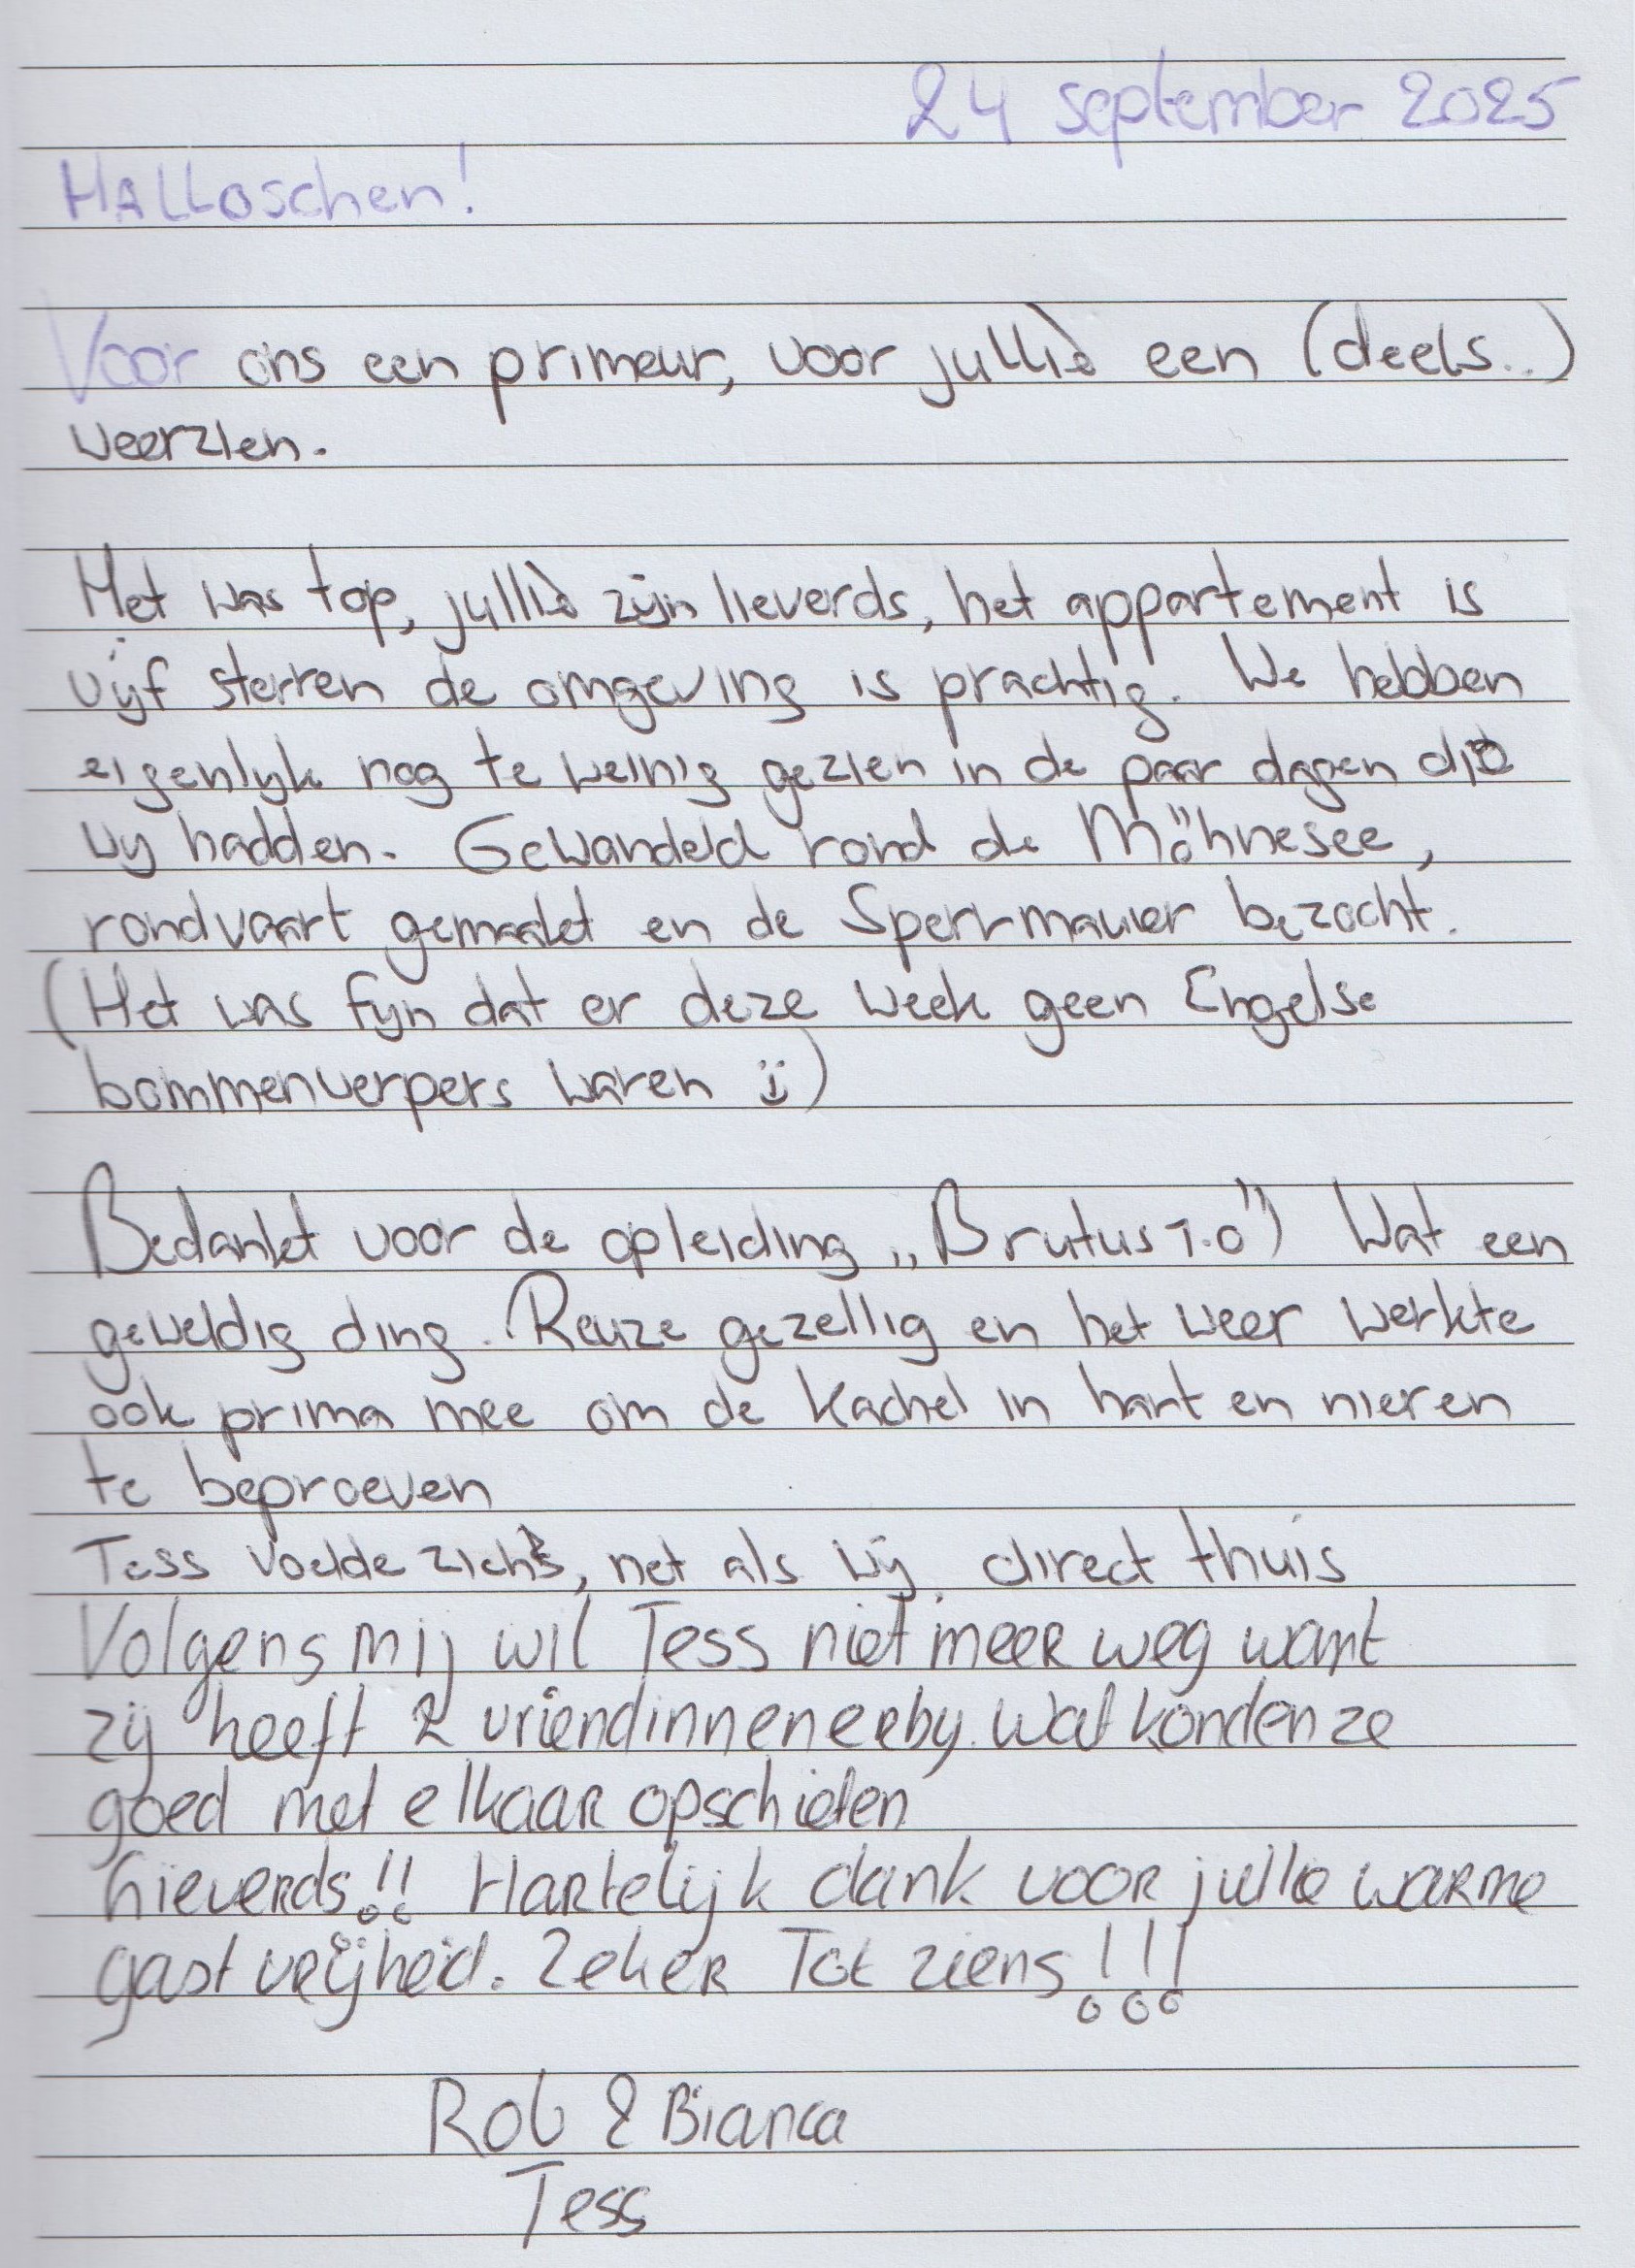 24 september 2025
HALLOschen!
Voor ons een primeur, voor jullie een (deels..)
weerzien.
Het was top, jullie zijn lieverds, het appartement is
vijf sterren de omgeving is prachtig. We hebben
eigenlijk nog te weinig gezien in de paar dagen die
wij hadden. Gewandeld rond de Möhnesee,
rondvaart gemaakt en de Sperrmauer bezocht.
(Het was fijn dat er deze week geen Engelse
bommenwerpers waren ü)
Bedankt voor de opleiding „Brutus 1.0") Wat een
geweldig ding. Reuze gezellig en het weer werkte
ook prima mee om de kachel in hart en nieren
te beproeven
Tess voelde zich, net als wij, direct thuis
Volgens mij wil Tess niet meer weg want
zij heeft 2 vriendinnen erby. Wat konden ze
goed met elkaar opschieten
Lieverds!! Hartelijk dank voor jullie warme
gastvrijheid. Zeker Tot ziens!!!
Rob & Bianca
Tess